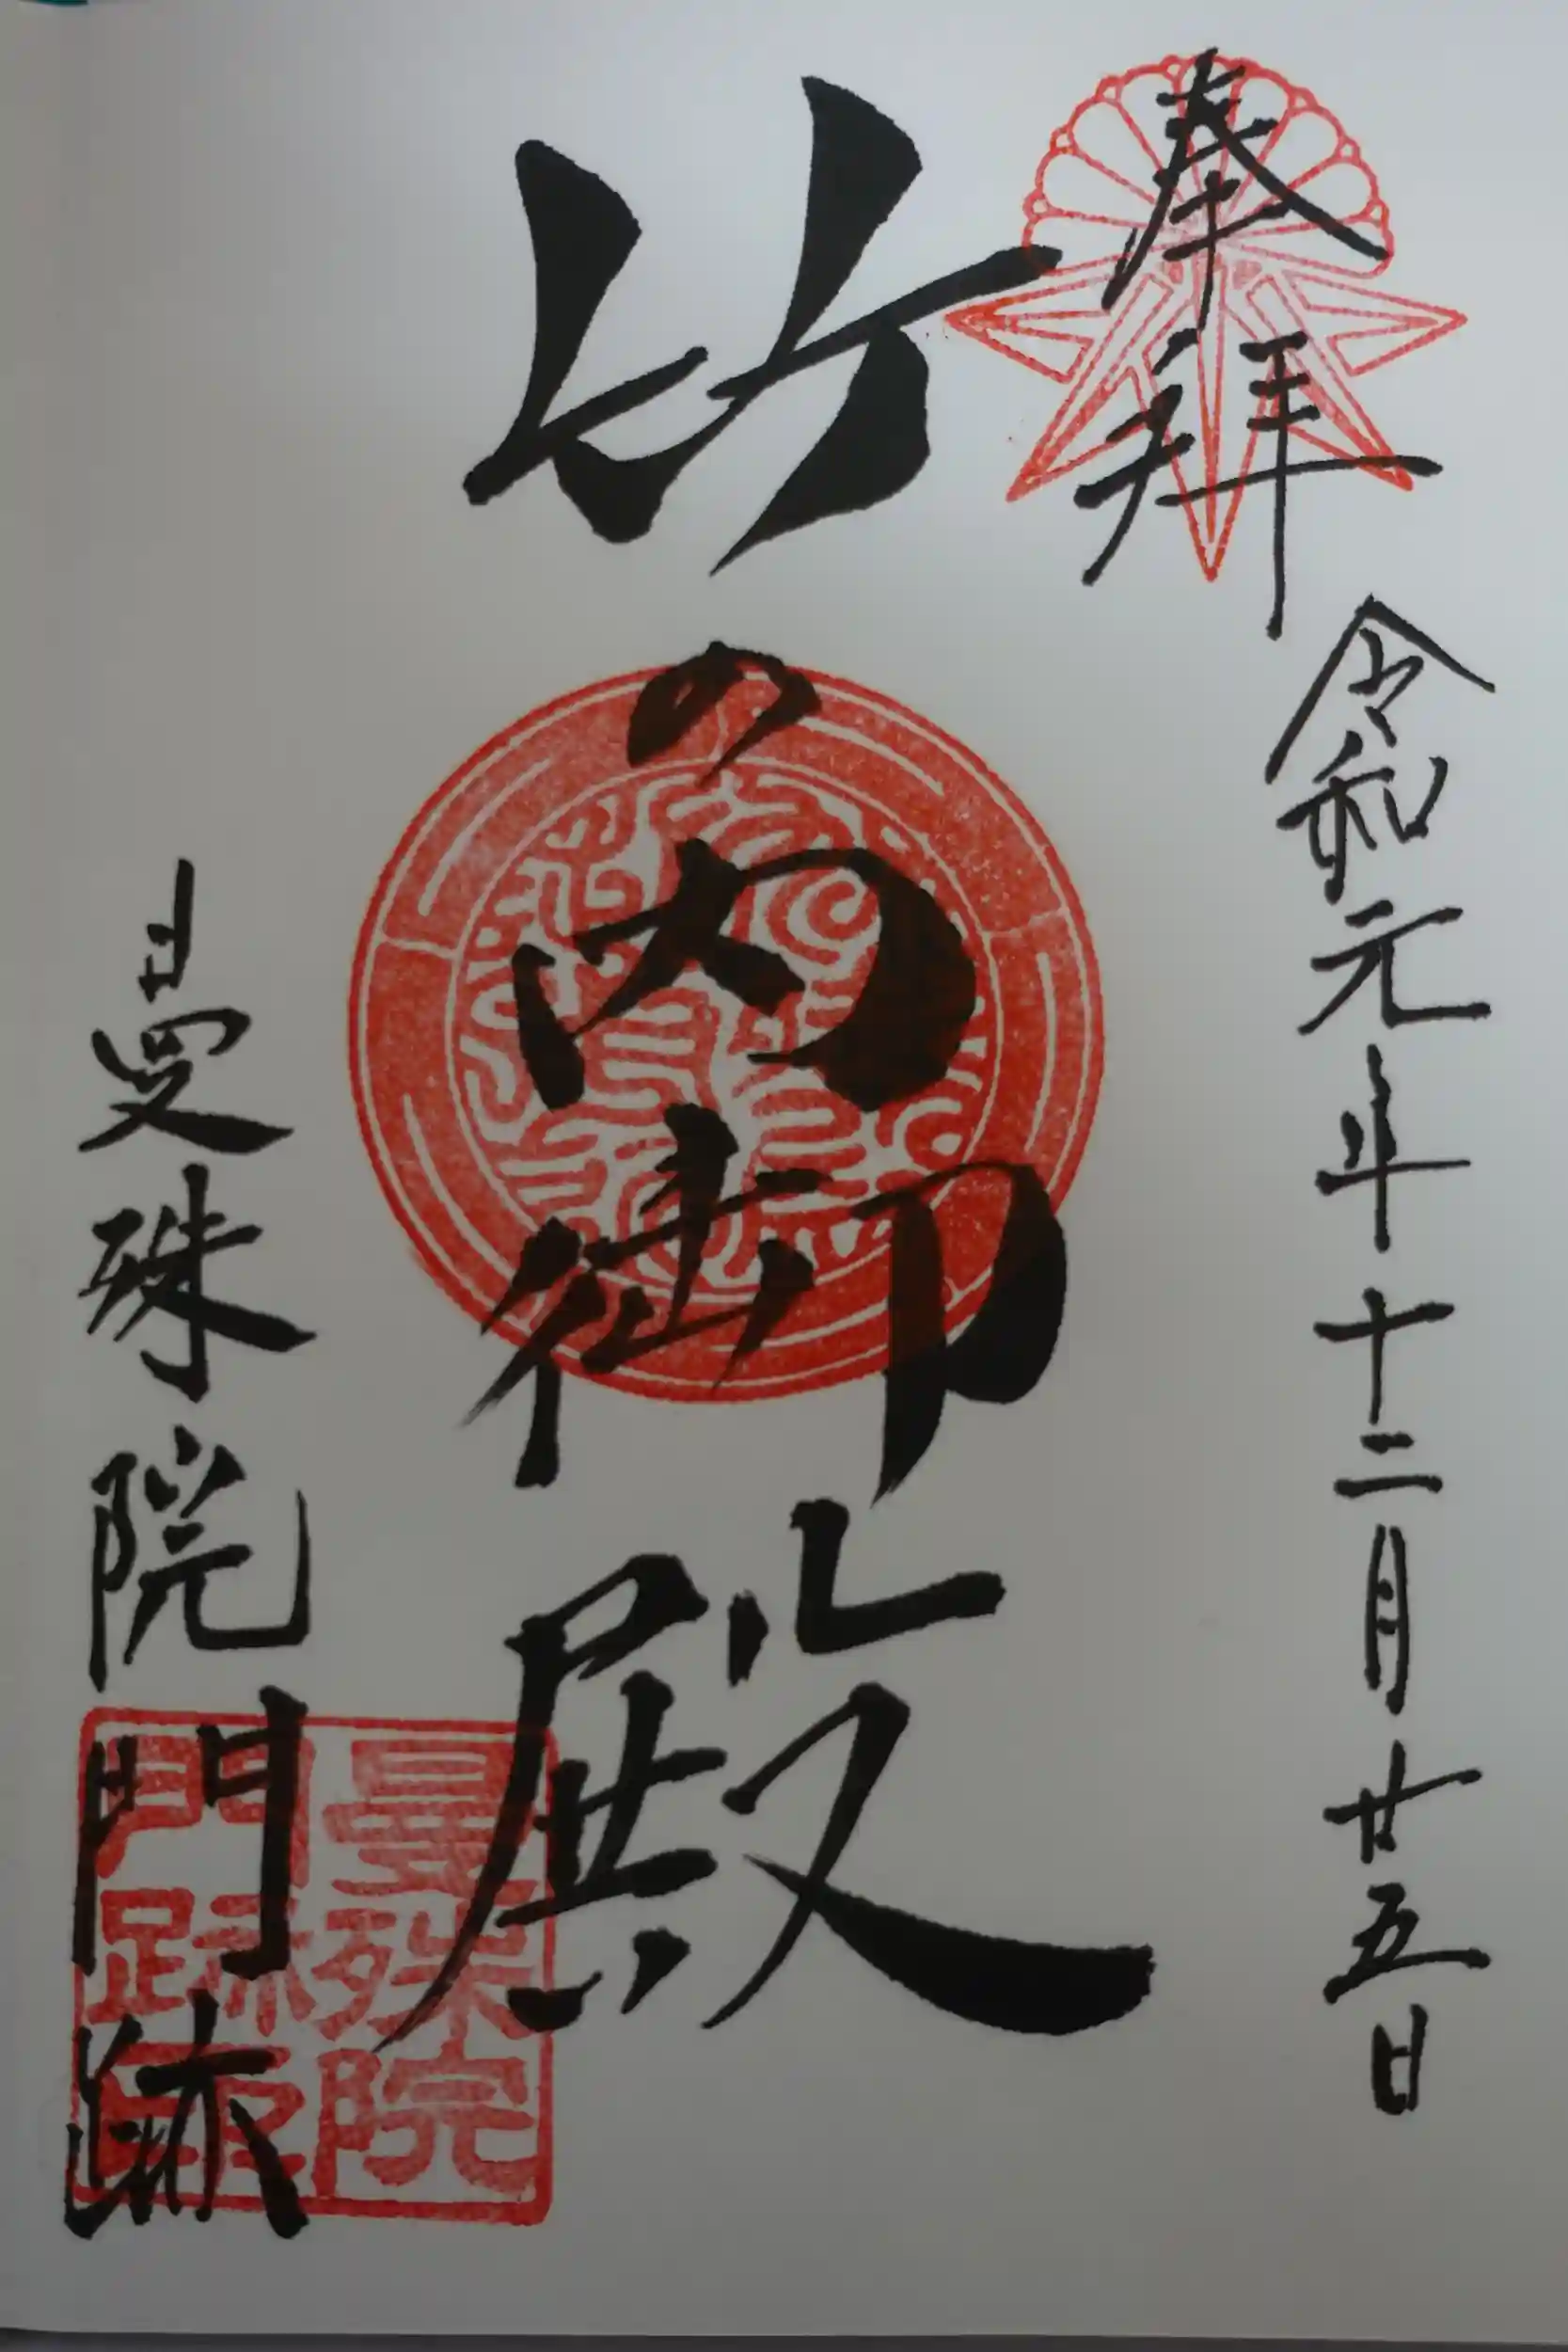 奉拝
令和元年十二月廿五日
竹の内御殿
曼殊院門跡
曼殊院
門跡印